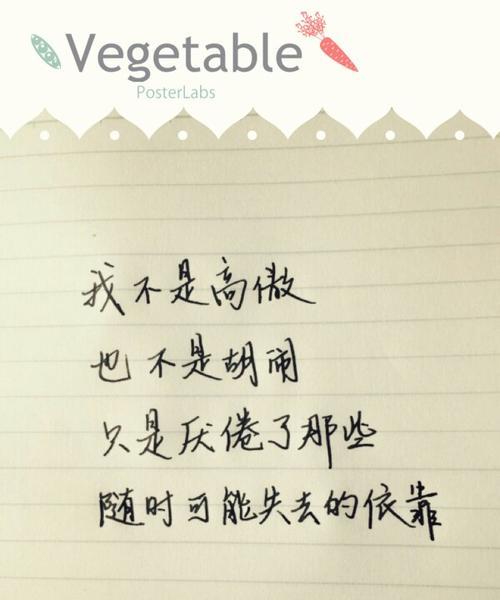 Vegetable
PosterLabs
我不是高傲
也不是胡闹
只是厌倦了那些
随时可能失去的依靠